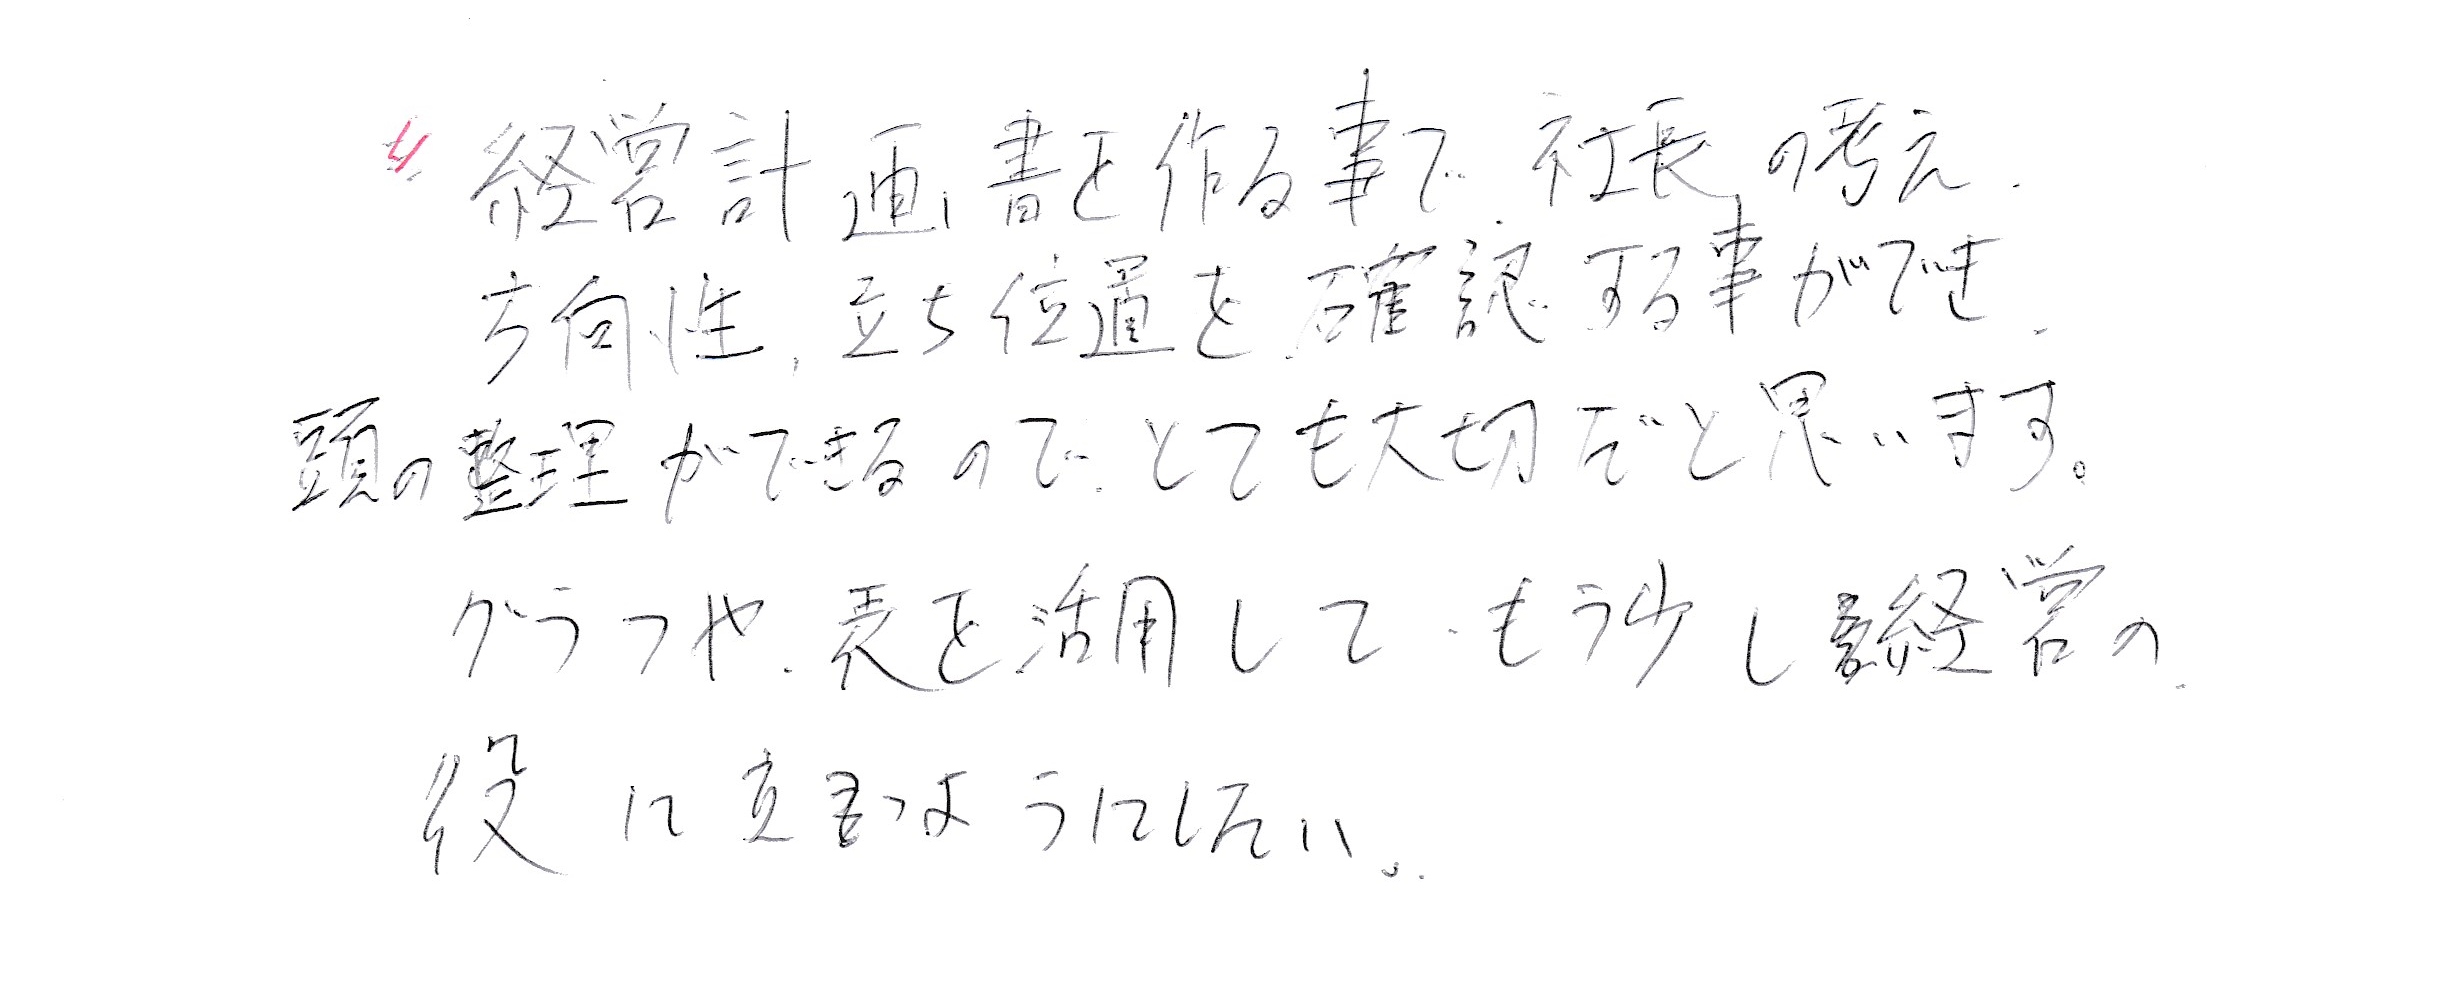 経営計画書を作る事で、社長の考え、
方向性、立ち位置を確認する事ができ、
頭の整理ができるので、とても大切だと思います。
グラフや、表を活用して、もう少し経営の
役に立つようにしたい。